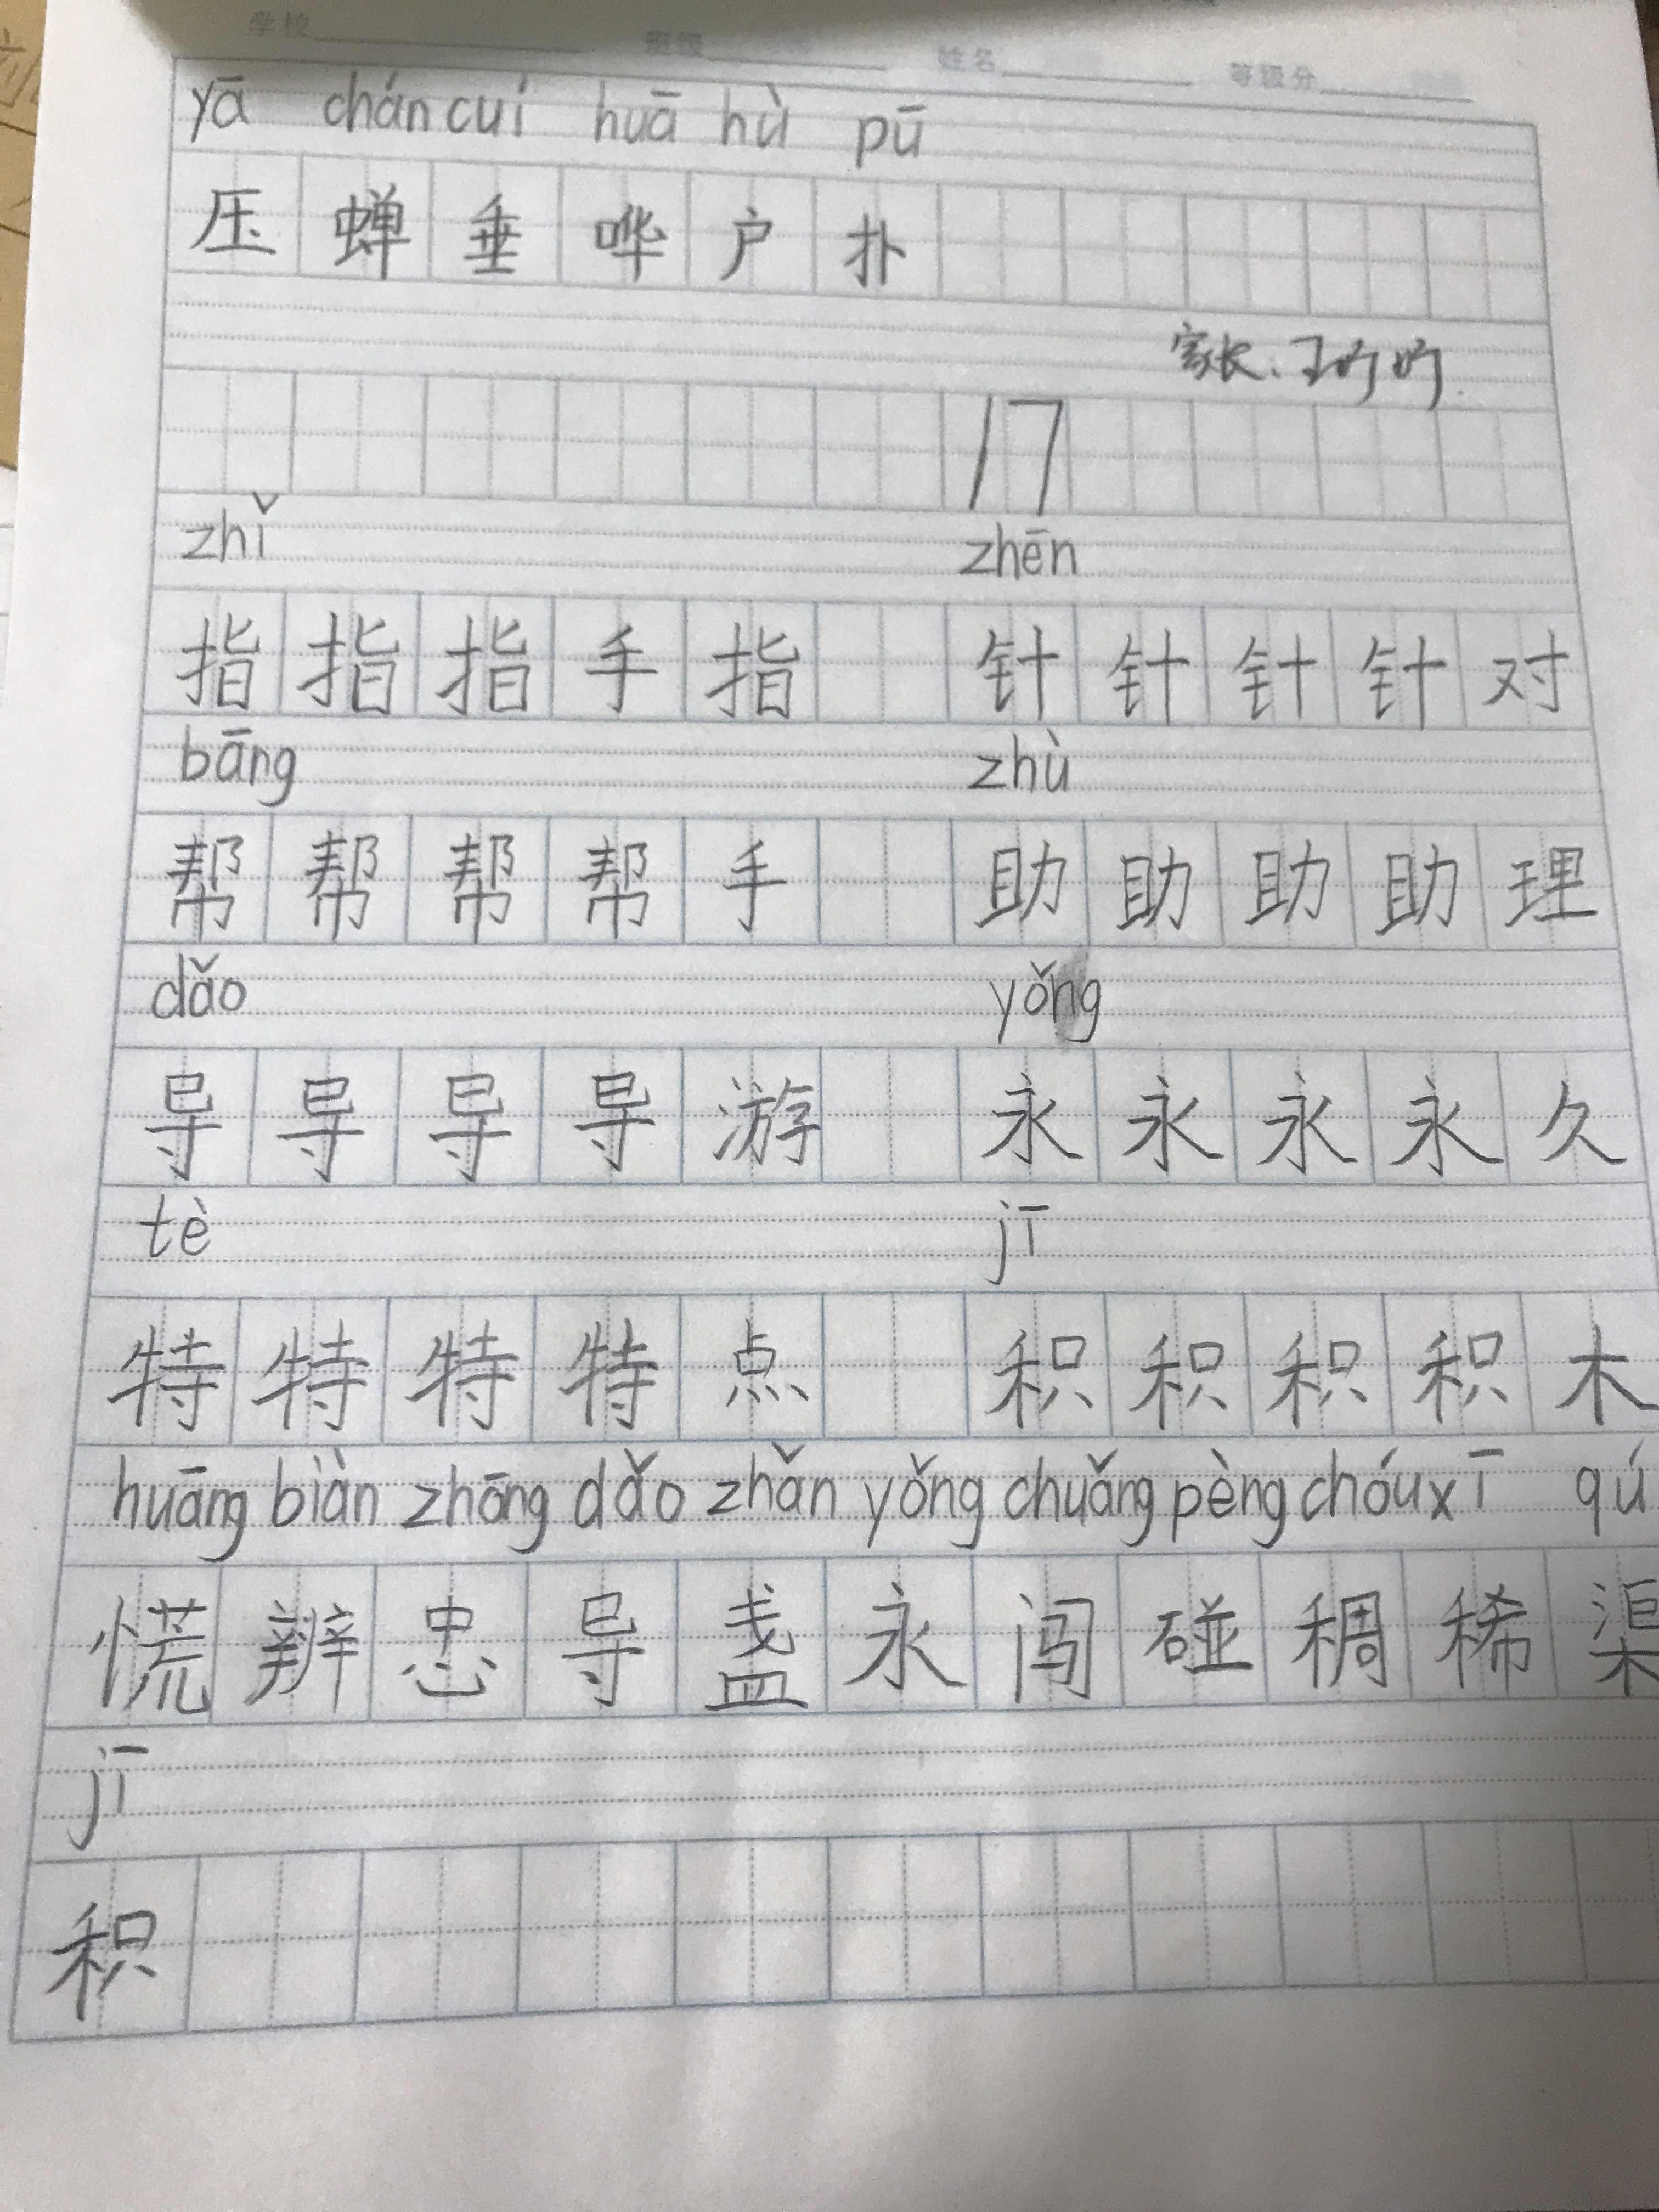 学校 班级 姓名 等级分
yā chán cuí huā hù pū
压蝉垂哗户扑
家长:
17
zhǐ zhēn
指指指手指 针针针针对
bāng zhù
帮帮帮帮手 助助助助理
dǎo yǒng
导导导导游 永永永永久
tè jī
特特特特点 积积积积木
huāng biàn zhōng dǎo zhǎn yǒng chuǎng pèng chóu xī qú
慌辨忠导盏永闯碰稠稀渠
jī
积